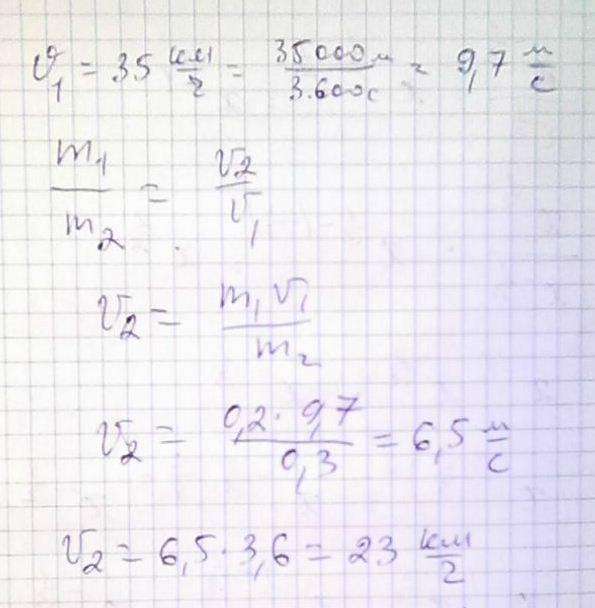 υ₁ = 35 км/ч = 35000м/3.600с = 9,7 м/с
m₁/m₂ = υ₂/υ₁
υ₂ = m₁υ₁/m₂
υ₂ = 0,2 · 9,7/0,3 = 6,5 м/с
υ₂ = 6,5 · 3,6 = 23 км/ч